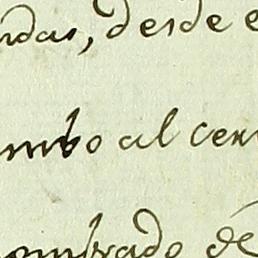 ndas, desde e
umbo al cer
ombrado de